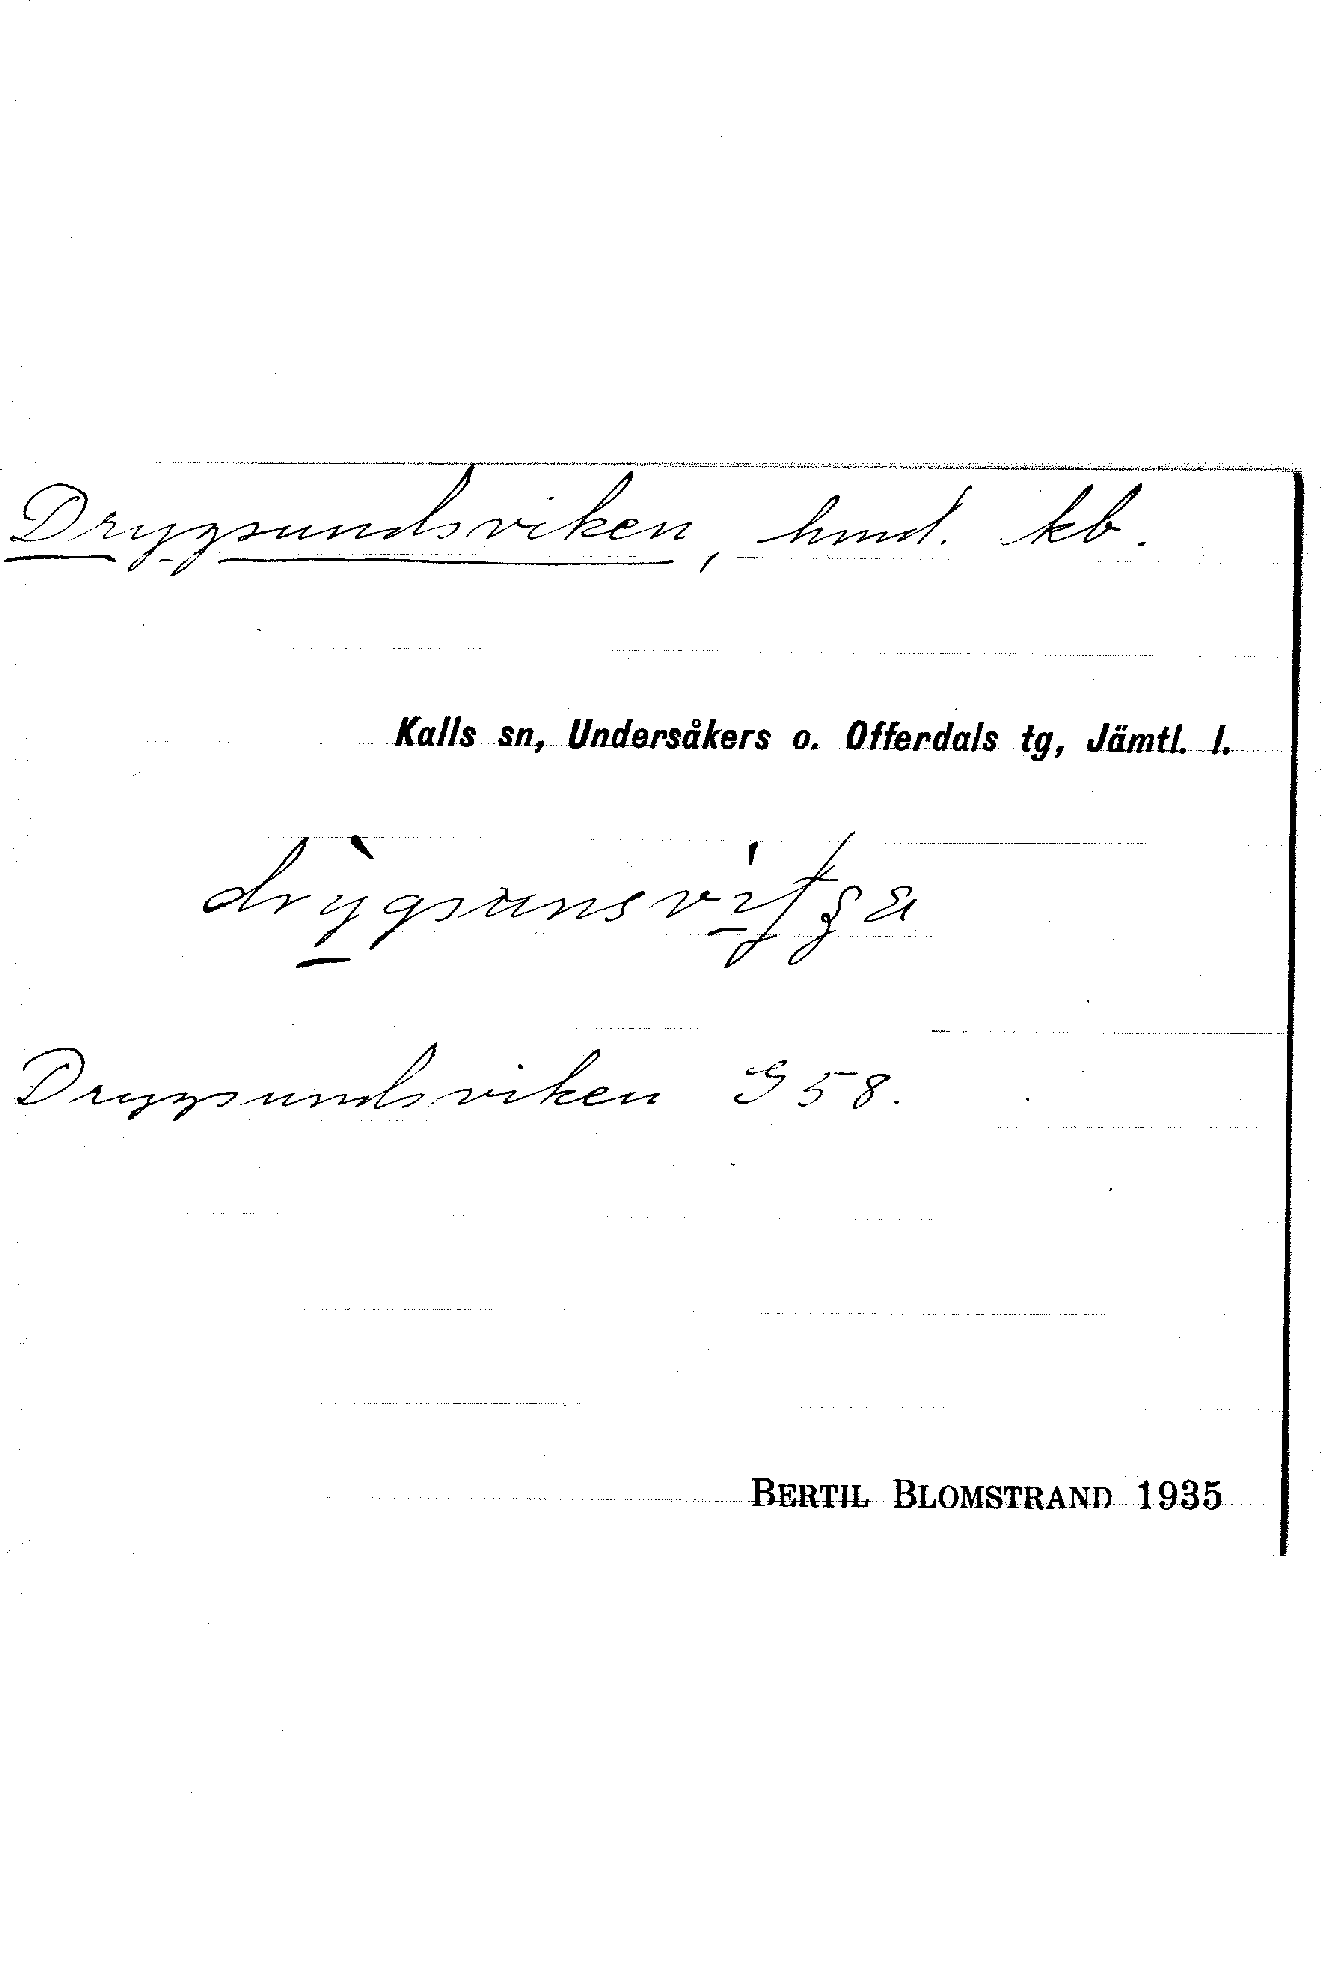 Drygsundsviken, hmd. kb.
Kalls sn, Undersåkers o. Offerdals tg, Jämtl. l.
Drygsundsviken G58.
BERTIL BLOMSTRAND 1935